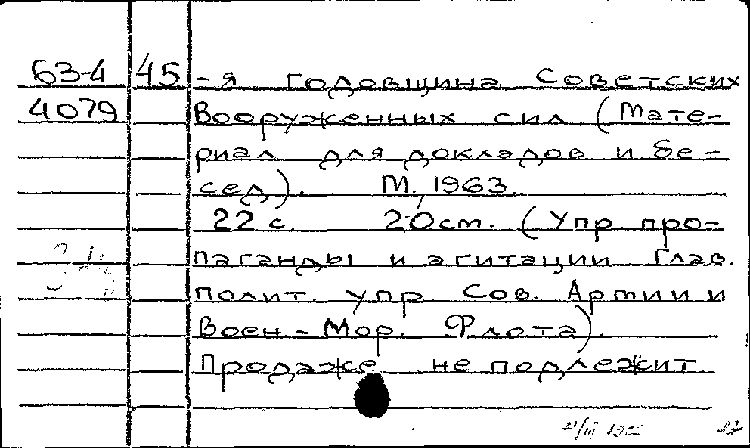 63-4 45 -я годовщина Советских
4079 Вооруженных сил (Мате-
риал для докладов и бе-
сед). М., 1963.
22 с. 20 см. (Упр про-
паганды и агитации Глав.
полит. упр Сов. Армии и
Воен-Мор. Флота).
Продаже не подлежит